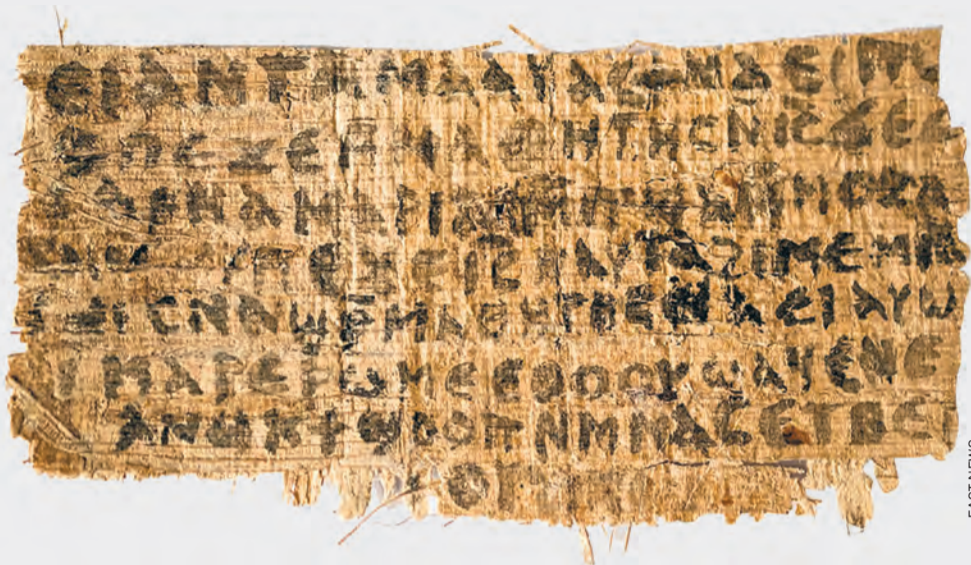 ⲉⲓ ⲁⲛ ⲧⲁⲙⲁⲁⲩ ⲁⲥϯ ⲛⲁⲉⲓ
ⲡⲉϫⲉ ⲙⲙⲁⲑⲏⲧⲏⲥ ⲛⲓⲥ ϫⲉ
ⲁⲣⲛⲁ ⲙⲁⲣⲓⲁⲙ
ⲡⲉϫⲉ ⲓⲥ ⲛⲁⲩ ⲧⲁϩⲓⲙⲉ ⲙⲛ
ⲥⲛⲁϣⲣⲙⲁⲑⲏⲧⲏⲥ ⲛⲁⲉⲓ ⲁⲩⲱ
ⲙⲁⲣⲉⲣⲱⲙⲉ ⲉⲑⲟⲟⲩ ϣⲁϥⲉ ⲛⲉ
ⲁⲛⲟⲕ ϯϣⲟⲟⲡ ⲛⲙⲙⲁⲥ ⲉⲧⲃⲉ
EAST NEWS